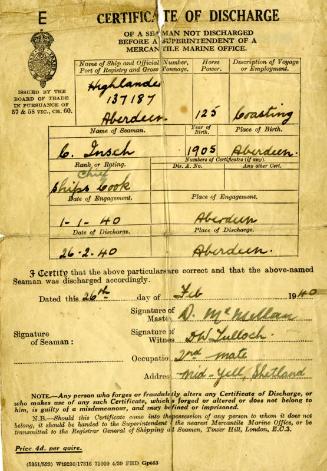 E
CERTIFICATE OF DISCHARGE
OF A SEAMAN NOT DISCHARGED
BEFORE A SUPERINTENDENT OF A
MERCANTILE MARINE OFFICE.
ISSUED BY THE
BOARD OF TRADE
IN PURSUANCE OF
57 & 58 VIC., CH. 60.
Name of Ship and Official Number,
Port of Registry and Gross Tonnage.
Horse
Power.
Description of Voyage
or Employment.
Highlander
137187
Aberdeen
125
Coasting
Name of Seaman.
Year of
Birth.
Place of Birth.
C. Insch
1905
Aberdeen.
Rank or Rating.
Numbers of Certificates (if any).
Dis. A. No.
Any other Cert.
Chief
Ships Cook
Date of Engagement.
Place of Engagement.
1-1-40
Aberdeen
Date of Discharge.
Place of Discharge.
26-2-40
Aberdeen.
I Certify that the above particulars are correct and that the above-named
Seaman was discharged accordingly.
Dated this 26th day of Feb 1940
Signature of
Master
D. McMillan
Signature
of Seaman :
Signature of
Witness
Tulloch
Occupation
2nd mate
Address
Mid-Yell, Shetland
NOTE.—Any person who forges or fraudulently alters any Certificate of Discharge, or
who makes use of any such Certificate, which is forged or altered or does not belong to
him, is guilty of a misdemeanour, and may be fined or imprisoned.
N.B.—Should this Certificate come into the possession of any person to whom it does not
belong, it should be handed to the Superintendent of the nearest Mercantile Marine Office, or be
transmitted to the Registrar General of Shipping and Seamen, Tower Hill, London, E.C.3.
Price 4d. per quire.